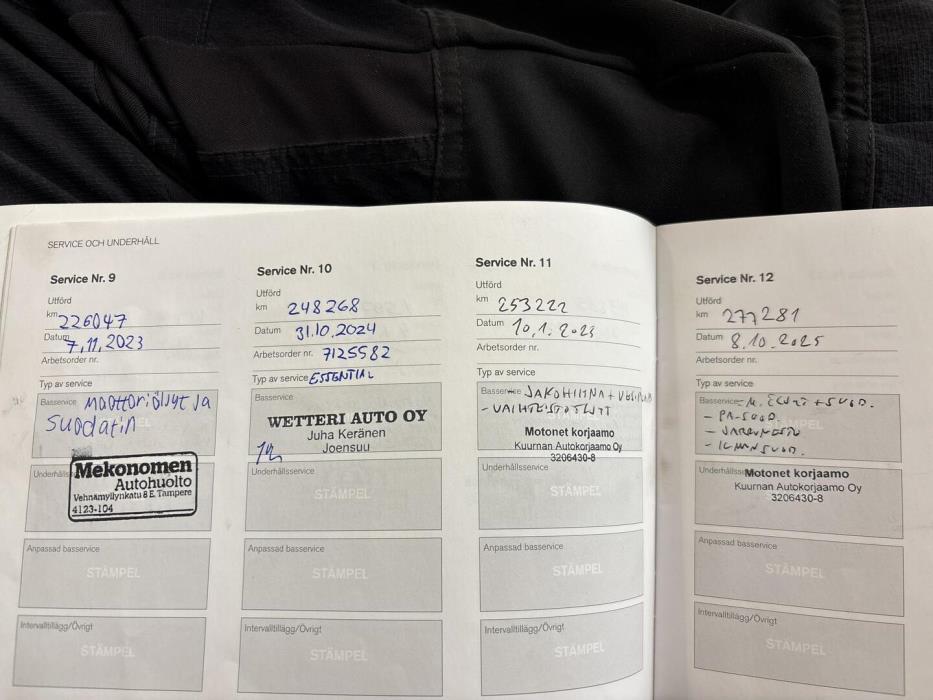 SERVICE OCH UNDERHÅLL
Service Nr. 9
Utförd
km 226047
Datum 7,11,2023
Arbetsorder nr.
Typ av service
Basservice Moottoriöljyt ja
suodatin
Underhålls
Mekonomen
Autohuolto
Vehnämyllynkatu 8 E, Tampere
4123-104
Anpassad basservice
STÄMPEL
Intervalltillägg/Övrigt
STÄMPEL
Service Nr. 10
Utförd
km 248268
Datum 31.10.2024
Arbetsorder nr. 7125582
Typ av service ESSENTIAL
Basservice
WETTERI AUTO OY
Juha Keränen
Joensuu
Underhållsservice
STÄMPEL
Anpassad basservice
STÄMPEL
Intervalltillägg/Övrigt
STÄMPEL
Service Nr. 11
Utförd
km 253222
Datum 10,1.2023
Arbetsorder nr.
Typ av service
Basservice JAKOHIHNA +
Motonet korjaamo
Kuurnan Autokorjaamo Oy
3206430-8
Underhållsservice
STÄMPEL
Anpassad basservice
STÄMPEL
Intervalltillägg/Övrigt
STÄMPEL
Service Nr. 12
Utförd
km 277281
Datum 8.10.2025
Arbetsorder nr.
Typ av service
Basservice - M. ÖLJYT + SUOD.
- PA-SUOD.
- JARRUNESTE
- ILMANSUOD.
Underhålls
Motonet korjaamo
Kuurnan Autokorjaamo Oy
3206430-8
Anpassad basservice
STÄMPEL
Intervalltillägg/Övrigt
STÄMPEL